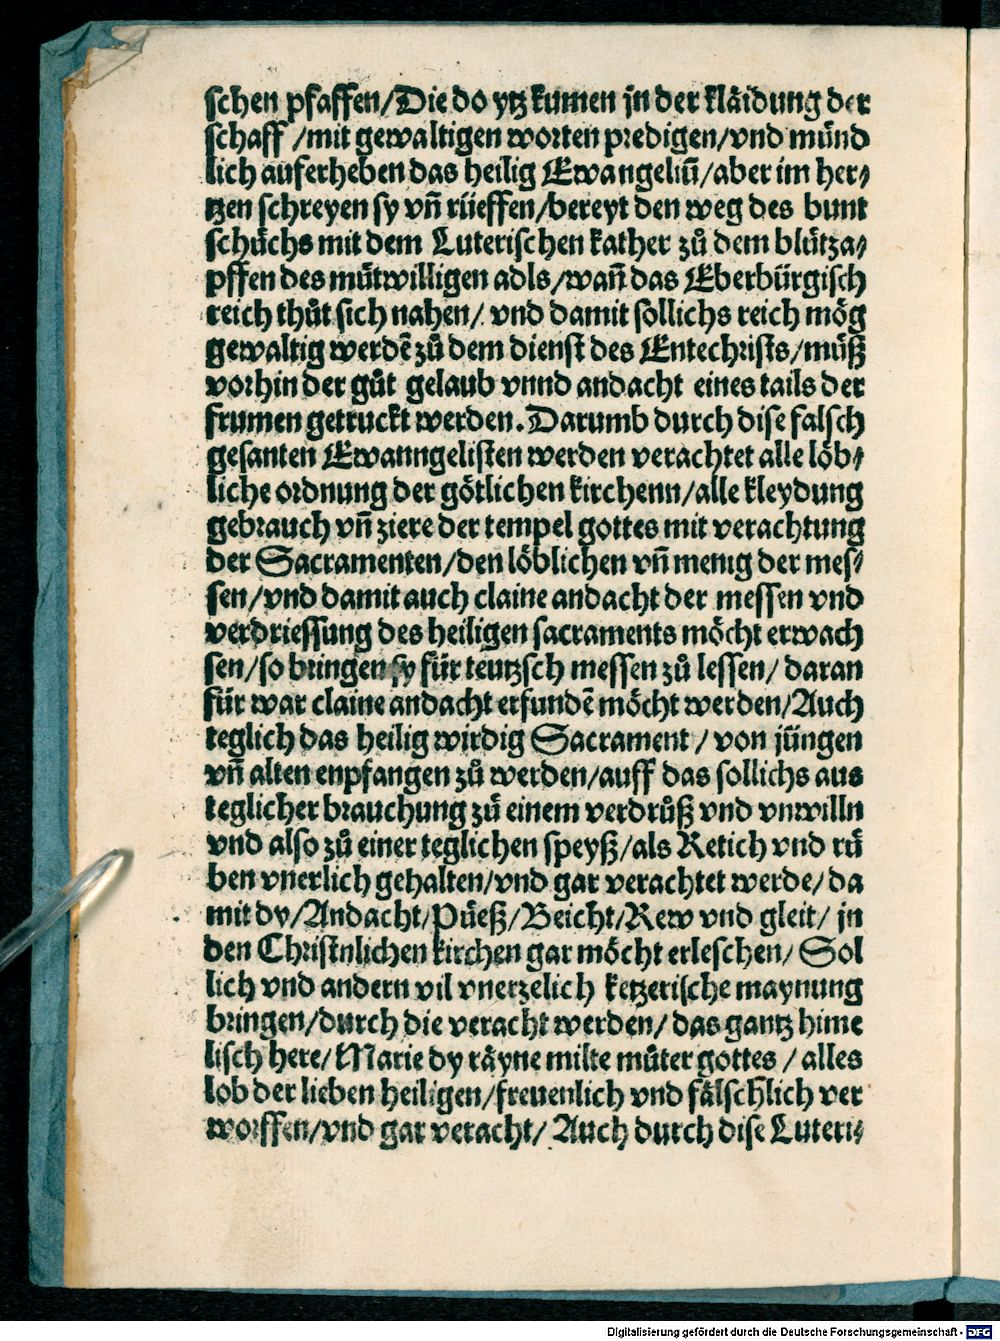 schen pfaffen/Die do ytz kumen jn der kläidung der
schaff /mit gewaltigen worten predigen/vnd münd
lich auferheben das heilig Ewangeliū/aber im her⸗
tzen schreyen sy vn̄ rüeffen/bereyt den weg des bunt
schůchs mit dem Luterischen kather zů dem blůtza⸗
pffen des můtwilligen adls/wan̄ das Eberbürgisch
reich thůt sich nahen/ vnd damit sollichs reich mög
gewaltig werdē zů dem dienst des Entechrists/můß
vorhin der gůt gelaub vnnd andacht eines tails der
frumen getruckt werden. Darumb durch dise falsch
gesanten Ewanngelisten werden verachtet alle löb⸗
liche ordnung der götlichen kirchenn/alle kleydung
gebrauch vn̄ ziere der tempel gottes mit verachtung
der Sacramenten/den löblichen vn̄ menig der mes⸗
sen/vnd damit auch claine andacht der messen vnd
verdriessung des heiligen sacraments möcht erwach
sen/so bringen sy für teutzsch messen zů lessen/ daran
für war claine andacht erfundē möcht werden/Auch
teglich das heilig wirdig Sacrament / von jüngen
vn̄ alten enpfangen zů werden/auff das sollichs aus
teglicher brauchung zů einem verdrůß vnd vnwilln
vnd also zů einer teglichen speyß/als Retich vnd rů
ben vnerlich gehalten/vnd gar verachtet werde/ da
mit dy/Andacht/Püeß/Beicht/Rew vnd gleit/ jn
den Christnlichen kirchen gar möcht erleschen/ Sol
lich vnd andern vil vnerzelich ketzerische maynung
bringen/durch die veracht werden/ das gantz hime
lisch here/Marie dy räyne milte můter gottes / alles
lob der lieben heiligen/freuenlich vnd fälschlich ver
worffen/vnd gar veracht/ Auch durch dise Luteri⸗
Digitalisierung gefördert durch die Deutsche Forschungsgemeinschaft - DFG